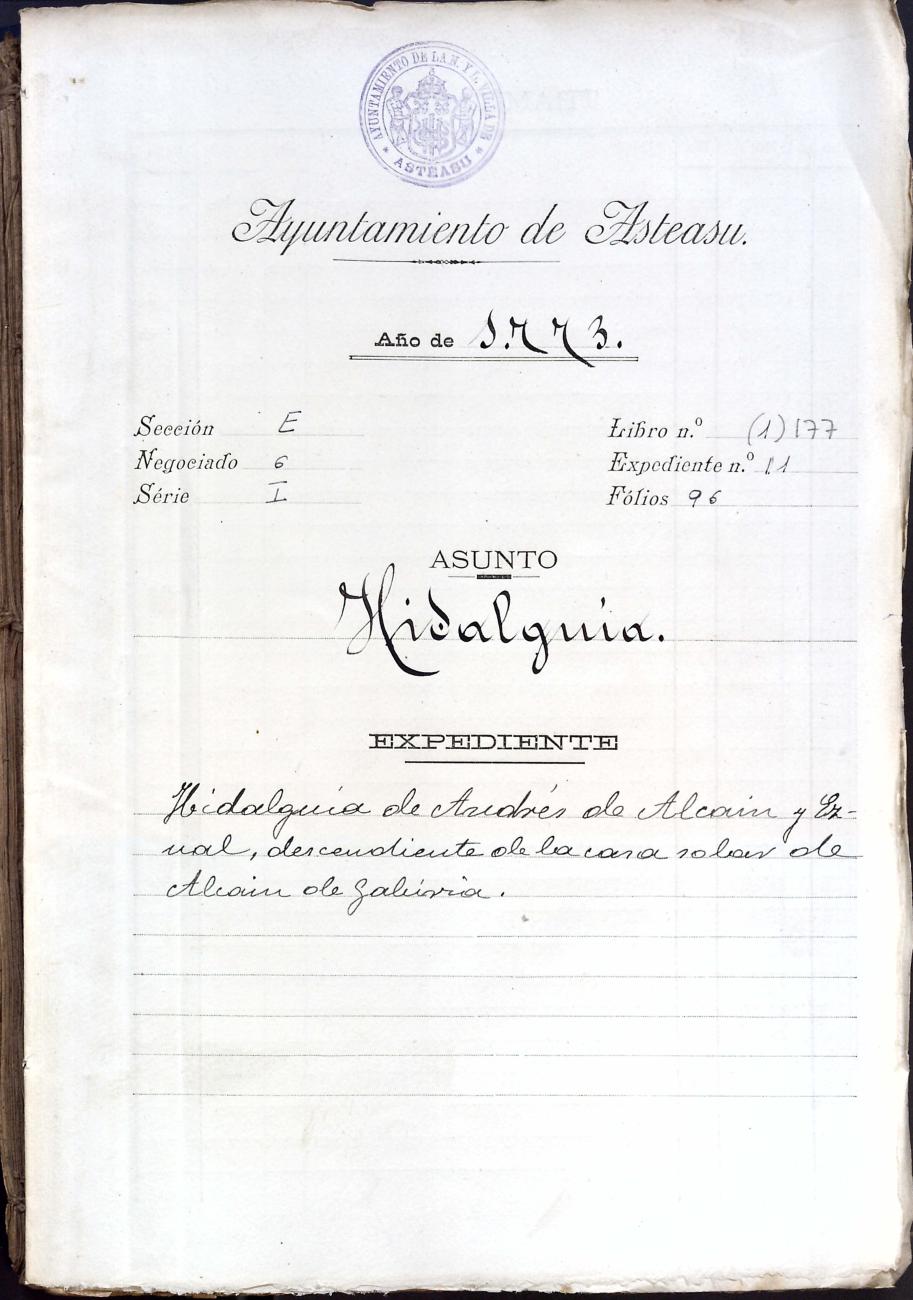 AYUNTAMIENTO DE LA N. Y L. VILLA DE
* ASTEASU *
Ayuntamiento de Asteasu.
Año de 1.773.
Sección E
Negociado 6
Série I
Libro n.º (1) 177
Expediente n.º 11
Fólios 96
ASUNTO
Hidalguía.
EXPEDIENTE
Hidalguía de Andrés de Alcain y Ez-
nal, descendiente de la casa solar de
Alcain de Zabiria.